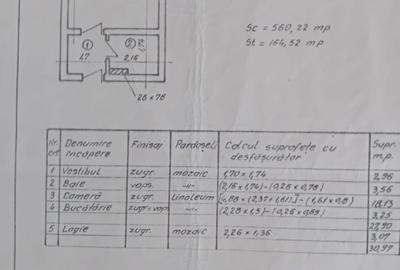 Sc = 560,22 mp
St = 164,52 mp
1
2
1,7
2,16
26 x 78
Nr. crt. Denumire încăpere Finisaj Pardoseli Calcul suprafețe cu desfășurător Supr. m.p.
1 Vestibul zugr. mozaic 1,70 x 1,74 2,96
2 Baie vops. -"- (2,16 x 1,74) - (0,26 x 0,78) 3,56
3 Cameră zugr. Linoleum [4,88 x (2,37 + 1,61)] - (1,61 x 0,8) 18,13
4 Bucătărie zugr + vops -"- (2,28 x 1,5) - (0,26 x 0,65) 3,25
27,90
5 Logie zugr. mozaic 2,26 x 1,36 3,07
30,97